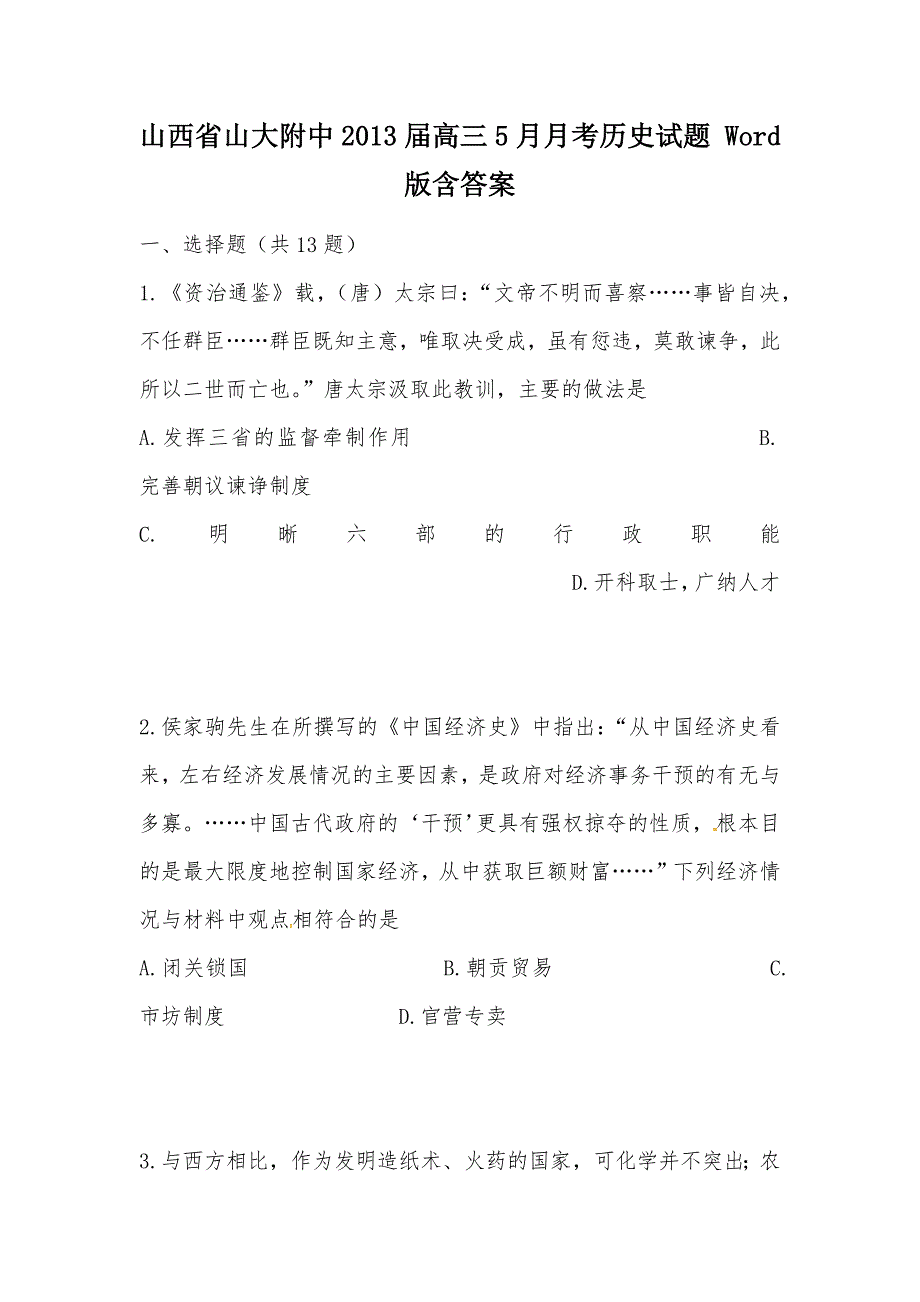 山西省山大附中2013届高三5月月考历史试题 Word
版含答案
一、选择题（共13题）
1.《资治通鉴》载，（唐）太宗曰：“文帝不明而喜察……事皆自决，
不任群臣……群臣既知主意，唯取决受成，虽有愆违，莫敢谏争，此
所以二世而亡也。”唐太宗汲取此教训，主要的做法是
A.发挥三省的监督牵制作用 B.
完善朝议谏诤制度
C. 明晰六部的行政职能
D.开科取士，广纳人才
2.侯家驹先生在所撰写的《中国经济史》中指出：“从中国经济史看
来，左右经济发展情况的主要因素，是政府对经济事务干预的有无与
多寡。……中国古代政府的‘干预’更具有强权掠夺的性质，根本目
的是最大限度地控制国家经济，从中获取巨额财富……”下列经济情
况与材料中观点相符合的是
A.闭关锁国 B.朝贡贸易 C.
市坊制度 D.官营专卖
3.与西方相比，作为发明造纸术、火药的国家，可化学并不突出；农